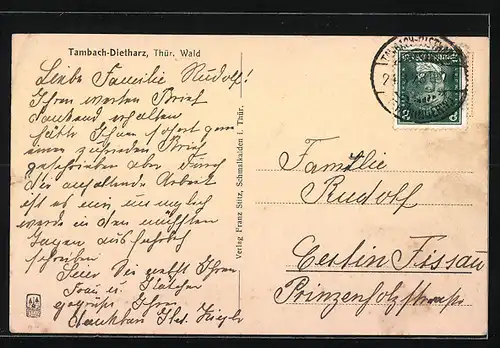 Tambach-Dietharz, Thür. Wald
Liebe Familie Rudolf!
Ihren werten Brief
dankend erhalten
hätte Ihnen sofort gern
einen Brief
geschrieben aber durch
die anhaltende Arbeit
ist es mir unmöglich
werde in den nächsten
Tagen ausführlich
schreiben
Ihnen
Frau u.
Ihr
dankbar
Verlag Franz Stitz, Schmalkalden i. Thür.
8 8
Familie
Rudolf
Eutin Fissau
Prinzenholzstrasse